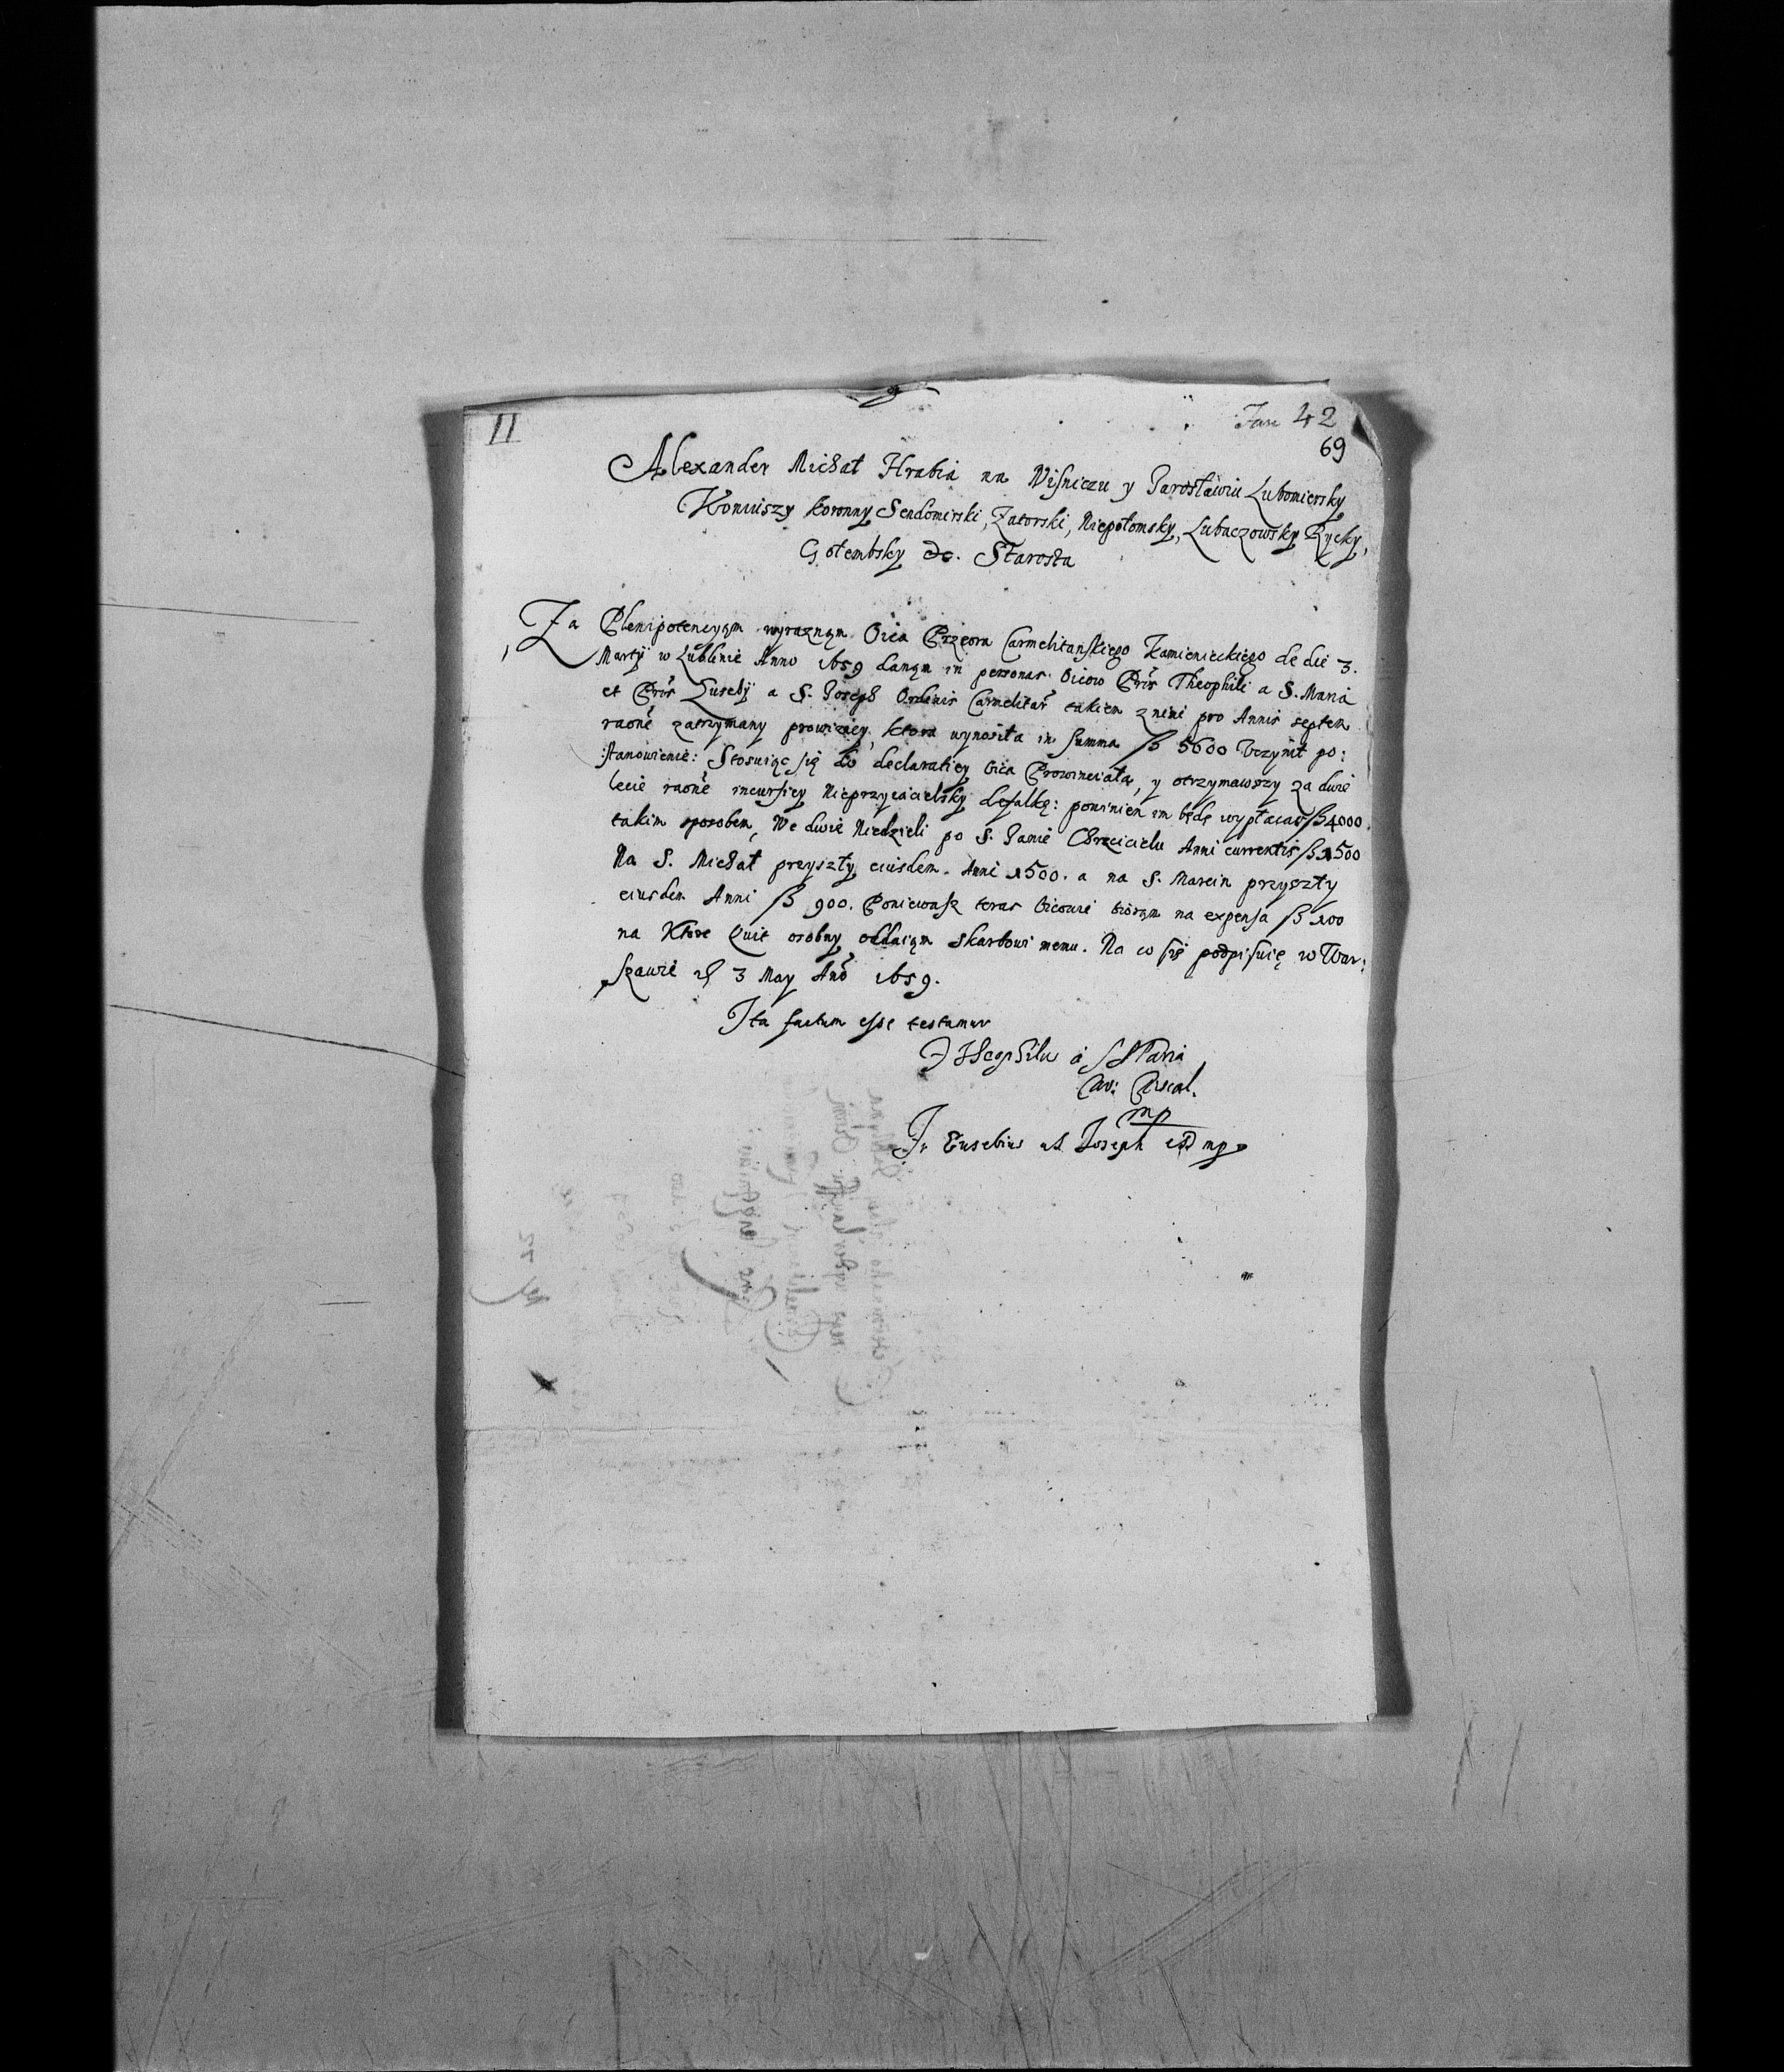 II
Fasc 42
69
Alexander Michał Hrabia na Wiśniczu y Jarosławiu Lubomiersky
Koniuszy Koronny Sendomirski, Zatorski, Niepołomsky, Lubaczowsky Rycky,
Gołembsky &c. Starosta
Za Plenipotencyąm wyraznąm Oica Przeora Carmelitanskiego Kamienieckiego de die 3.
Martÿ w Lublinie Anno 1659 danąm in personas Oicow Pris Theophili a S. Maria
et Pris Eusebÿ a S. Joseph Ordinis Carmelitar takiem z nimi pro Annis septem
raone zatrzymany prowiziey, ktora wynosiła in summa ß 5600 Vczynił po:
stanowienie: Stosuiąc się do declaratiey Oica Prowinciała, y otrzymawszy za dwie
lecie raone incursiey Nieprzyiacielsky defalkę: powinien im będę wypłacac ß 4000
takim sposobem, We dwie Niedzieli po S. Janie Chrzcicielu Anni currentis ß 1500
Na S. Michał przyszły eiusdem Anni 1500. a na S. Marcin przyszły
eiusdem Anni ß 900. Poniewasz teras Oicowie biorąm na expensa ß 100
na Ktore Quit osobny oddaiąm Skarbowi memu. Na co się podpisuię w War:
szawie d 3 May Ano 1659.
Ita factum esse testamur
F Theophilus à S Maria
mp
Fr Eusebius a S. Joseph mp